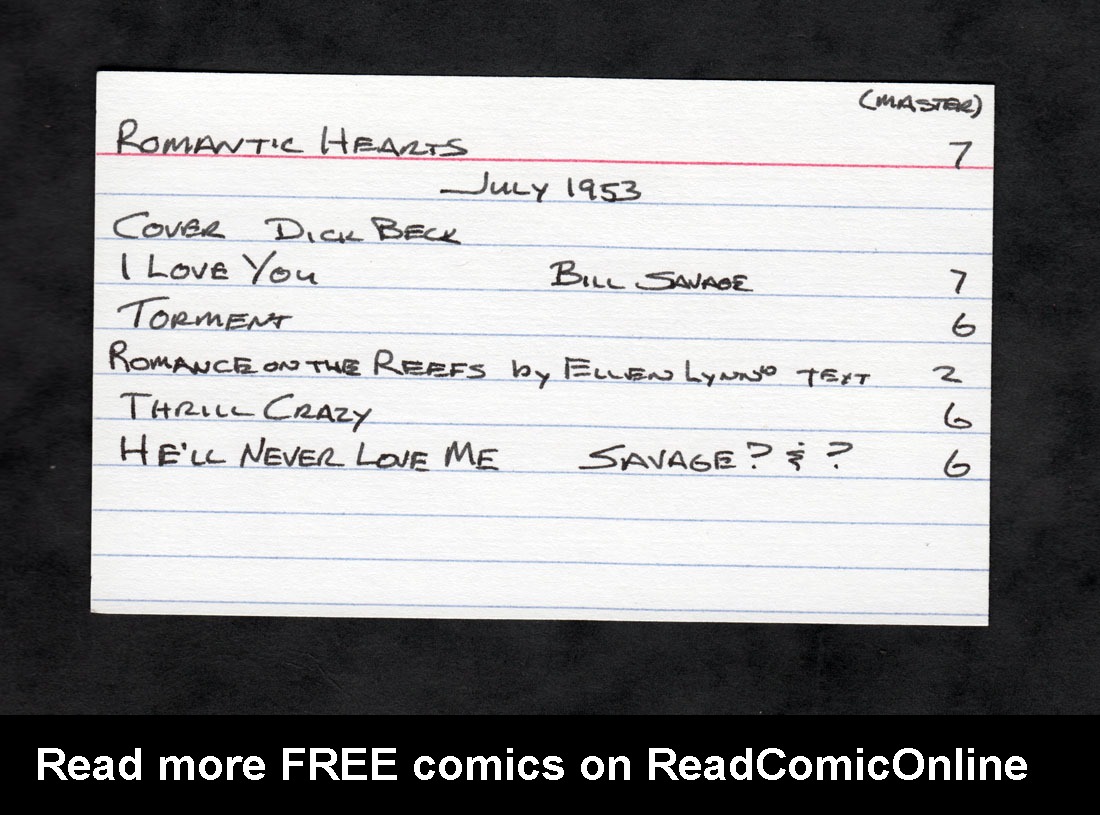 (MASTER)
ROMANTIC HEARTS 7
JULY 1953
COVER DICK BECK
I LOVE YOU BILL SAVAGE 7
TORMENT 6
ROMANCE ON THE REEFS by ELLEN LYNN TEXT 2
THRILL CRAZY 6
HE'LL NEVER LOVE ME SAVAGE? & ? 6
Read more FREE comics on ReadComicOnline